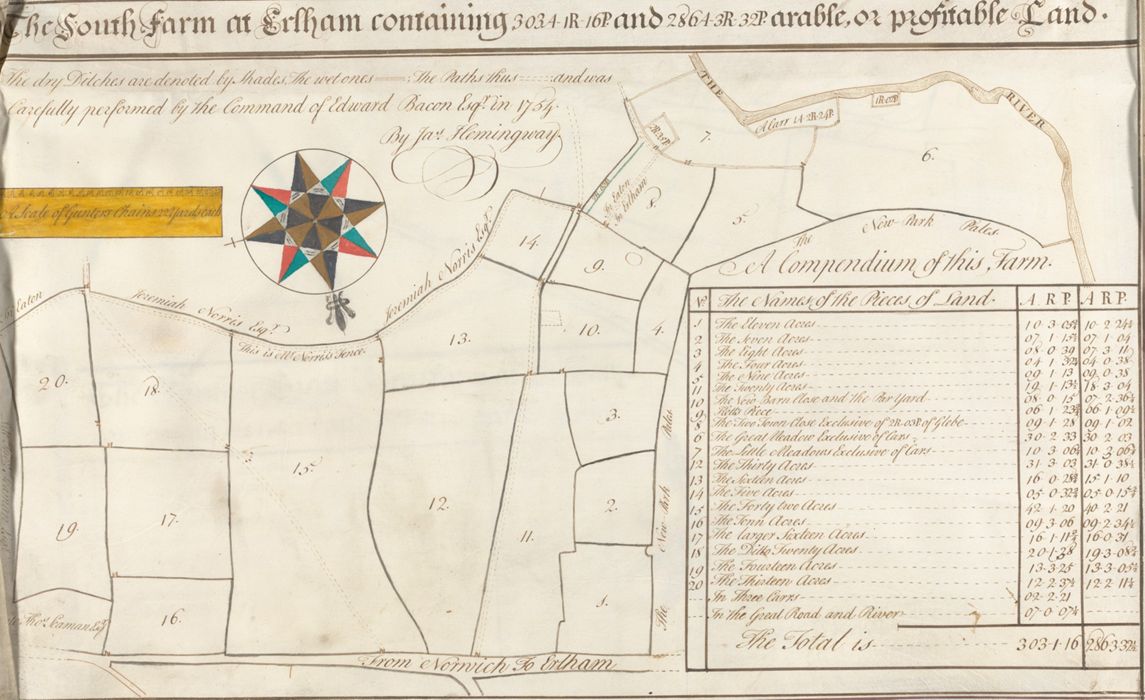 The South Farm at Erlham containing 303A·1R·16P and 286A·3R·32P arable, or profitable Land.
The dry Ditches are denoted by Shades, The wet ones The Paths thus and was
Carefully performed by the Command of Edward Bacon Esqr. in 1754.
By Jas. Hemingway
A Scale of Gunters Chains 22 Yards each
THE RIVER
A Carr 1A·2R·24P.
7.
6.
To Eaton
To Erlham
8.
5.
The New Park Pales.
14.
9.
Jeremiah Norris Esqr.
Eaton
Jeremiah Norris Esqr.
This is Mr. Norris's Fence.
13.
10.
4.
20.
18.
15.
12.
3.
2.
11.
19.
17.
16.
1.
Thos. Seaman Esqr.
The New Park Pales
From Norwich To Erlham
A Compendium of this Farm.
No. The Names of the Pieces of Land. A. R. P. A. R. P.
1 The Eleven Acres 10·3·05¾ 10·2·24¼
2 The Seven Acres 07·1·15¼ 07·1·04
3 The Eight Acres 08·0·39 07·3·11
4 The Four Acres 04·1·32¼ 04·0·38
5 The Nine Acres 09·1·13 09·0·38
11 The Twenty Acres 19·1·13¼ 18·3·04
10 The New Barn Close and the Par Yard 08·0·15 07·2·36¼
9 Piece 06·1·23¾ 06·1·09¼
8 The Two Town Close Exclusive of 2R·03P. of Glebe 09·1·28 09·1·02
6 The Great Meadow Exclusive of Cars 30·2·33 30·2·03
7 The Little Meadows Exclusive of Cars 10·3·06¼ 10·3·06¼
12 The Thirty Acres 31·3·03 31·0·38¼
13 The Sixteen Acres 16·0·28¾ 15·1·10
14 The Five Acres 05·0·32¾ 05·0·15¾
15 The Forty two Acres 42·1·20 40·2·21
16 The Tenn Acres 09·3·06 09·2·34¼
17 The Larger Sixteen Acres 16·1·11¾ 16·0·31
18 The Ditto Twenty Acres 20·1·38 19·3·08¾
19 The Fourteen Acres 13·3·25 13·3·05¼
20 The Thirteen Acres 12·2·37¼ 12·2·11¼
In Three Carrs 02·2·21
In the Great Road and River 07·0·07¼
The Total is 303·1·16 286·3·32¼